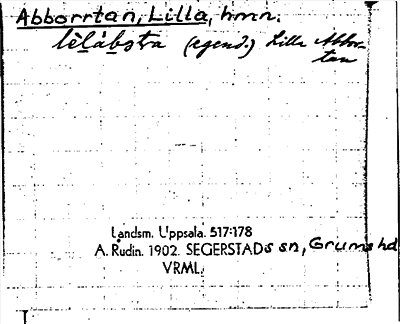 Abborrtan, Lilla, hmn.
lèlábstra (egend.) Lilla Abborr-
tan
Landsm. Uppsala. 517:178
A. Rudin. 1902. SEGERSTADs sn, Grums hd
VRML.